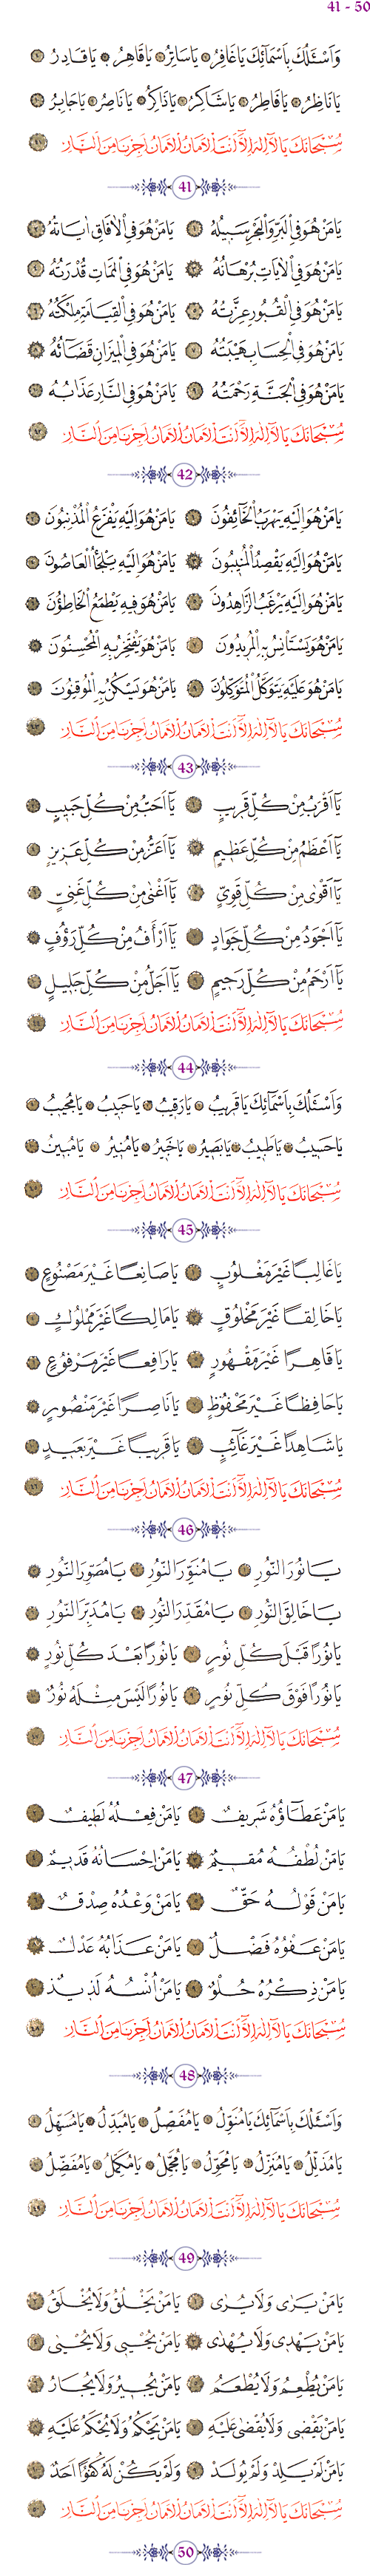 41 - 50
وَاَسْئَلُكَ بِاَسْمَآئِكَ يَا غَافِرُ يَا سَاتِرُ يَا قَاهِرُ يَا قَادِرُ
يَا نَاظِرُ يَا فَاطِرُ يَا شَاكِرُ يَا ذَاكِرُ يَا نَاصِرُ يَا جَابِرُ
سُبْحَانَكَ يَا لَآ اِلٰهَ اِلَّآ اَنْتَ الْاَمَانُ الْاَمَانُ اَجِرْنَا مِنَ النَّارِ
41
يَا مَنْ هُوَ فِى الْبَرِّ وَالْبَحْرِ سَبِيلُهُ يَا مَنْ هُوَ فِى الْاٰفَاقِ اٰيَاتُهُ
يَا مَنْ هُوَ فِى الْاٰيَاتِ بُرْهَانُهُ يَا مَنْ هُوَ فِى الْمَمَاتِ قُدْرَتُهُ
يَا مَنْ هُوَ فِى الْقُبُورِ عِزَّتُهُ يَا مَنْ هُوَ فِى الْقِيَامَةِ مِلْكَتُهُ
يَا مَنْ هُوَ فِى الْحِسَابِ هَيْبَتُهُ يَا مَنْ هُوَ فِى الْمِيزَانِ قَضَآئُهُ
يَا مَنْ هُوَ فِى الْجَنَّةِ رَحْمَتُهُ يَا مَنْ هُوَ فِى النَّارِ عَذَابُهُ
سُبْحَانَكَ يَا لَآ اِلٰهَ اِلَّآ اَنْتَ الْاَمَانُ الْاَمَانُ اَجِرْنَا مِنَ النَّارِ
42
يَا مَنْ هُوَ اِلَيْهِ يَهْرَبُ الْخَآئِفُونَ يَا مَنْ هُوَ اِلَيْهِ يَفْزَعُ الْمُذْنِبُونَ
يَا مَنْ هُوَ اِلَيْهِ يَقْصِدُ الْمُنِيبُونَ يَا مَنْ هُوَ اِلَيْهِ يَلْتَجِأُ الْعَاصُونَ
يَا مَنْ هُوَ اِلَيْهِ يَرْغَبُ الزَّاهِدُونَ يَا مَنْ هُوَ فِيهِ يَطْمَعُ الْخَاطِؤُنَ
يَا مَنْ هُوَ يَسْتَاْنِسُ بِهِ الْمُرِيدُونَ يَا مَنْ هُوَ يَفْتَخِرُ بِهِ الْمُحْسِنُونَ
يَا مَنْ هُوَ عَلَيْهِ يَتَوَكَّلُ الْمُتَوَكِّلُونَ يَا مَنْ هُوَ يَسْكُنُ بِهِ الْمُوقِنُونَ
سُبْحَانَكَ يَا لَآ اِلٰهَ اِلَّآ اَنْتَ الْاَمَانُ الْاَمَانُ اَجِرْنَا مِنَ النَّارِ
43
يَآ اَقْرَبُ مِنْ كُلِّ قَرِيبٍ يَآ اَحَبُّ مِنْ كُلِّ حَبِيبٍ
يَآ اَعْظَمُ مِنْ كُلِّ عَظِيمٍ يَآ اَعَزُّ مِنْ كُلِّ عَزِيزٍ
يَآ اَقْوٰى مِنْ كُلِّ قَوِيٍّ يَآ اَغْنٰى مِنْ كُلِّ غَنِيٍّ
يَآ اَجْوَدُ مِنْ كُلِّ جَوَادٍ يَآ اَرْأَفُ مِنْ كُلِّ رَؤُفٍ
يَآ اَرْحَمُ مِنْ كُلِّ رَحِيمٍ يَآ اَجَلُّ مِنْ كُلِّ جَلِيلٍ
سُبْحَانَكَ يَا لَآ اِلٰهَ اِلَّآ اَنْتَ الْاَمَانُ الْاَمَانُ اَجِرْنَا مِنَ النَّارِ
44
وَاَسْئَلُكَ بِاَسْمَآئِكَ يَا قَرِيبُ يَا رَقِيبُ يَا حَبِيبُ يَا مُجِيبُ
يَا حَسِيبُ يَا طَبِيبُ يَا بَصِيرُ يَا خَبِيرُ يَا مُنِيرُ يَا مُبِينُ
سُبْحَانَكَ يَا لَآ اِلٰهَ اِلَّآ اَنْتَ الْاَمَانُ الْاَمَانُ اَجِرْنَا مِنَ النَّارِ
45
يَا غَالِبًا غَيْرَ مَغْلُوبٍ يَا صَانِعًا غَيْرَ مَصْنُوعٍ
يَا خَالِقًا غَيْرَ مَخْلُوقٍ يَا مَالِكًا غَيْرَ مَمْلُوكٍ
يَا قَاهِرًا غَيْرَ مَقْهُورٍ يَا رَافِعًا غَيْرَ مَرْفُوعٍ
يَا حَافِظًا غَيْرَ مَحْفُوظٍ يَا نَاصِرًا غَيْرَ مَنْصُورٍ
يَا شَاهِدًا غَيْرَ غَآئِبٍ يَا قَرِيبًا غَيْرَ بَعِيدٍ
سُبْحَانَكَ يَا لَآ اِلٰهَ اِلَّآ اَنْتَ الْاَمَانُ الْاَمَانُ اَجِرْنَا مِنَ النَّارِ
46
يَا نُورَ النُّورِ يَا مُنَوِّرَ النُّورِ يَا مُصَوِّرَ النُّورِ
يَا خَالِقَ النُّورِ يَا مُقَدِّرَ النُّورِ يَا مُدَبِّرَ النُّورِ
يَا نُورًا قَبْلَ كُلِّ نُورٍ يَا نُورًا بَعْدَ كُلِّ نُورٍ
يَا نُورًا فَوْقَ كُلِّ نُورٍ يَا نُورًا لَيْسَ مِثْلَهُ نُورٌ
سُبْحَانَكَ يَا لَآ اِلٰهَ اِلَّآ اَنْتَ الْاَمَانُ الْاَمَانُ اَجِرْنَا مِنَ النَّارِ
47
يَا مَنْ عَطَآؤُهُ شَرِيفٌ يَا مَنْ فِعْلُهُ لَطِيفٌ
يَا مَنْ لُطْفُهُ مُقِيمٌ يَا مَنْ اِحْسَانُهُ قَدِيمٌ
يَا مَنْ قَوْلُهُ حَقٌّ يَا مَنْ وَعْدُهُ صِدْقٌ
يَا مَنْ عَفْوُهُ فَضْلٌ يَا مَنْ عَذَابُهُ عَدْلٌ
يَا مَنْ ذِكْرُهُ حُلْوٌ يَا مَنْ اُنْسُهُ لَذِيذٌ
سُبْحَانَكَ يَا لَآ اِلٰهَ اِلَّآ اَنْتَ الْاَمَانُ الْاَمَانُ اَجِرْنَا مِنَ النَّارِ
48
وَاَسْئَلُكَ بِاَسْمَآئِكَ يَا مُنَوِّلُ يَا مُفَصِّلُ يَا مُبَدِّلُ يَا مُسَهِّلُ
يَا مُذَلِّلُ يَا مُنَزِّلُ يَا مُحَوِّلُ يَا مُجَمِّلُ يَا مُكَمِّلُ يَا مُفَضِّلُ
سُبْحَانَكَ يَا لَآ اِلٰهَ اِلَّآ اَنْتَ الْاَمَانُ الْاَمَانُ اَجِرْنَا مِنَ النَّارِ
49
يَا مَنْ يَرٰى وَلَا يُرٰى يَا مَنْ يَخْلُقُ وَلَا يُخْلَقُ
يَا مَنْ يَهْدِى وَلَا يُهْدٰى يَا مَنْ يُحْيِى وَلَا يُحْيٰى
يَا مَنْ يُطْعِمُ وَلَا يُطْعَمُ يَا مَنْ يُجِيرُ وَلَا يُجَارُ
يَا مَنْ يَقْضِى وَلَا يُقْضٰى عَلَيْهِ يَا مَنْ يَحْكُمُ وَلَا يُحْكَمُ عَلَيْهِ
يَا مَنْ لَمْ يَلِدْ وَلَمْ يُولَدْ وَلَمْ يَكُنْ لَهُ كُفُوًا اَحَدٌ
سُبْحَانَكَ يَا لَآ اِلٰهَ اِلَّآ اَنْتَ الْاَمَانُ الْاَمَانُ اَجِرْنَا مِنَ النَّارِ
50